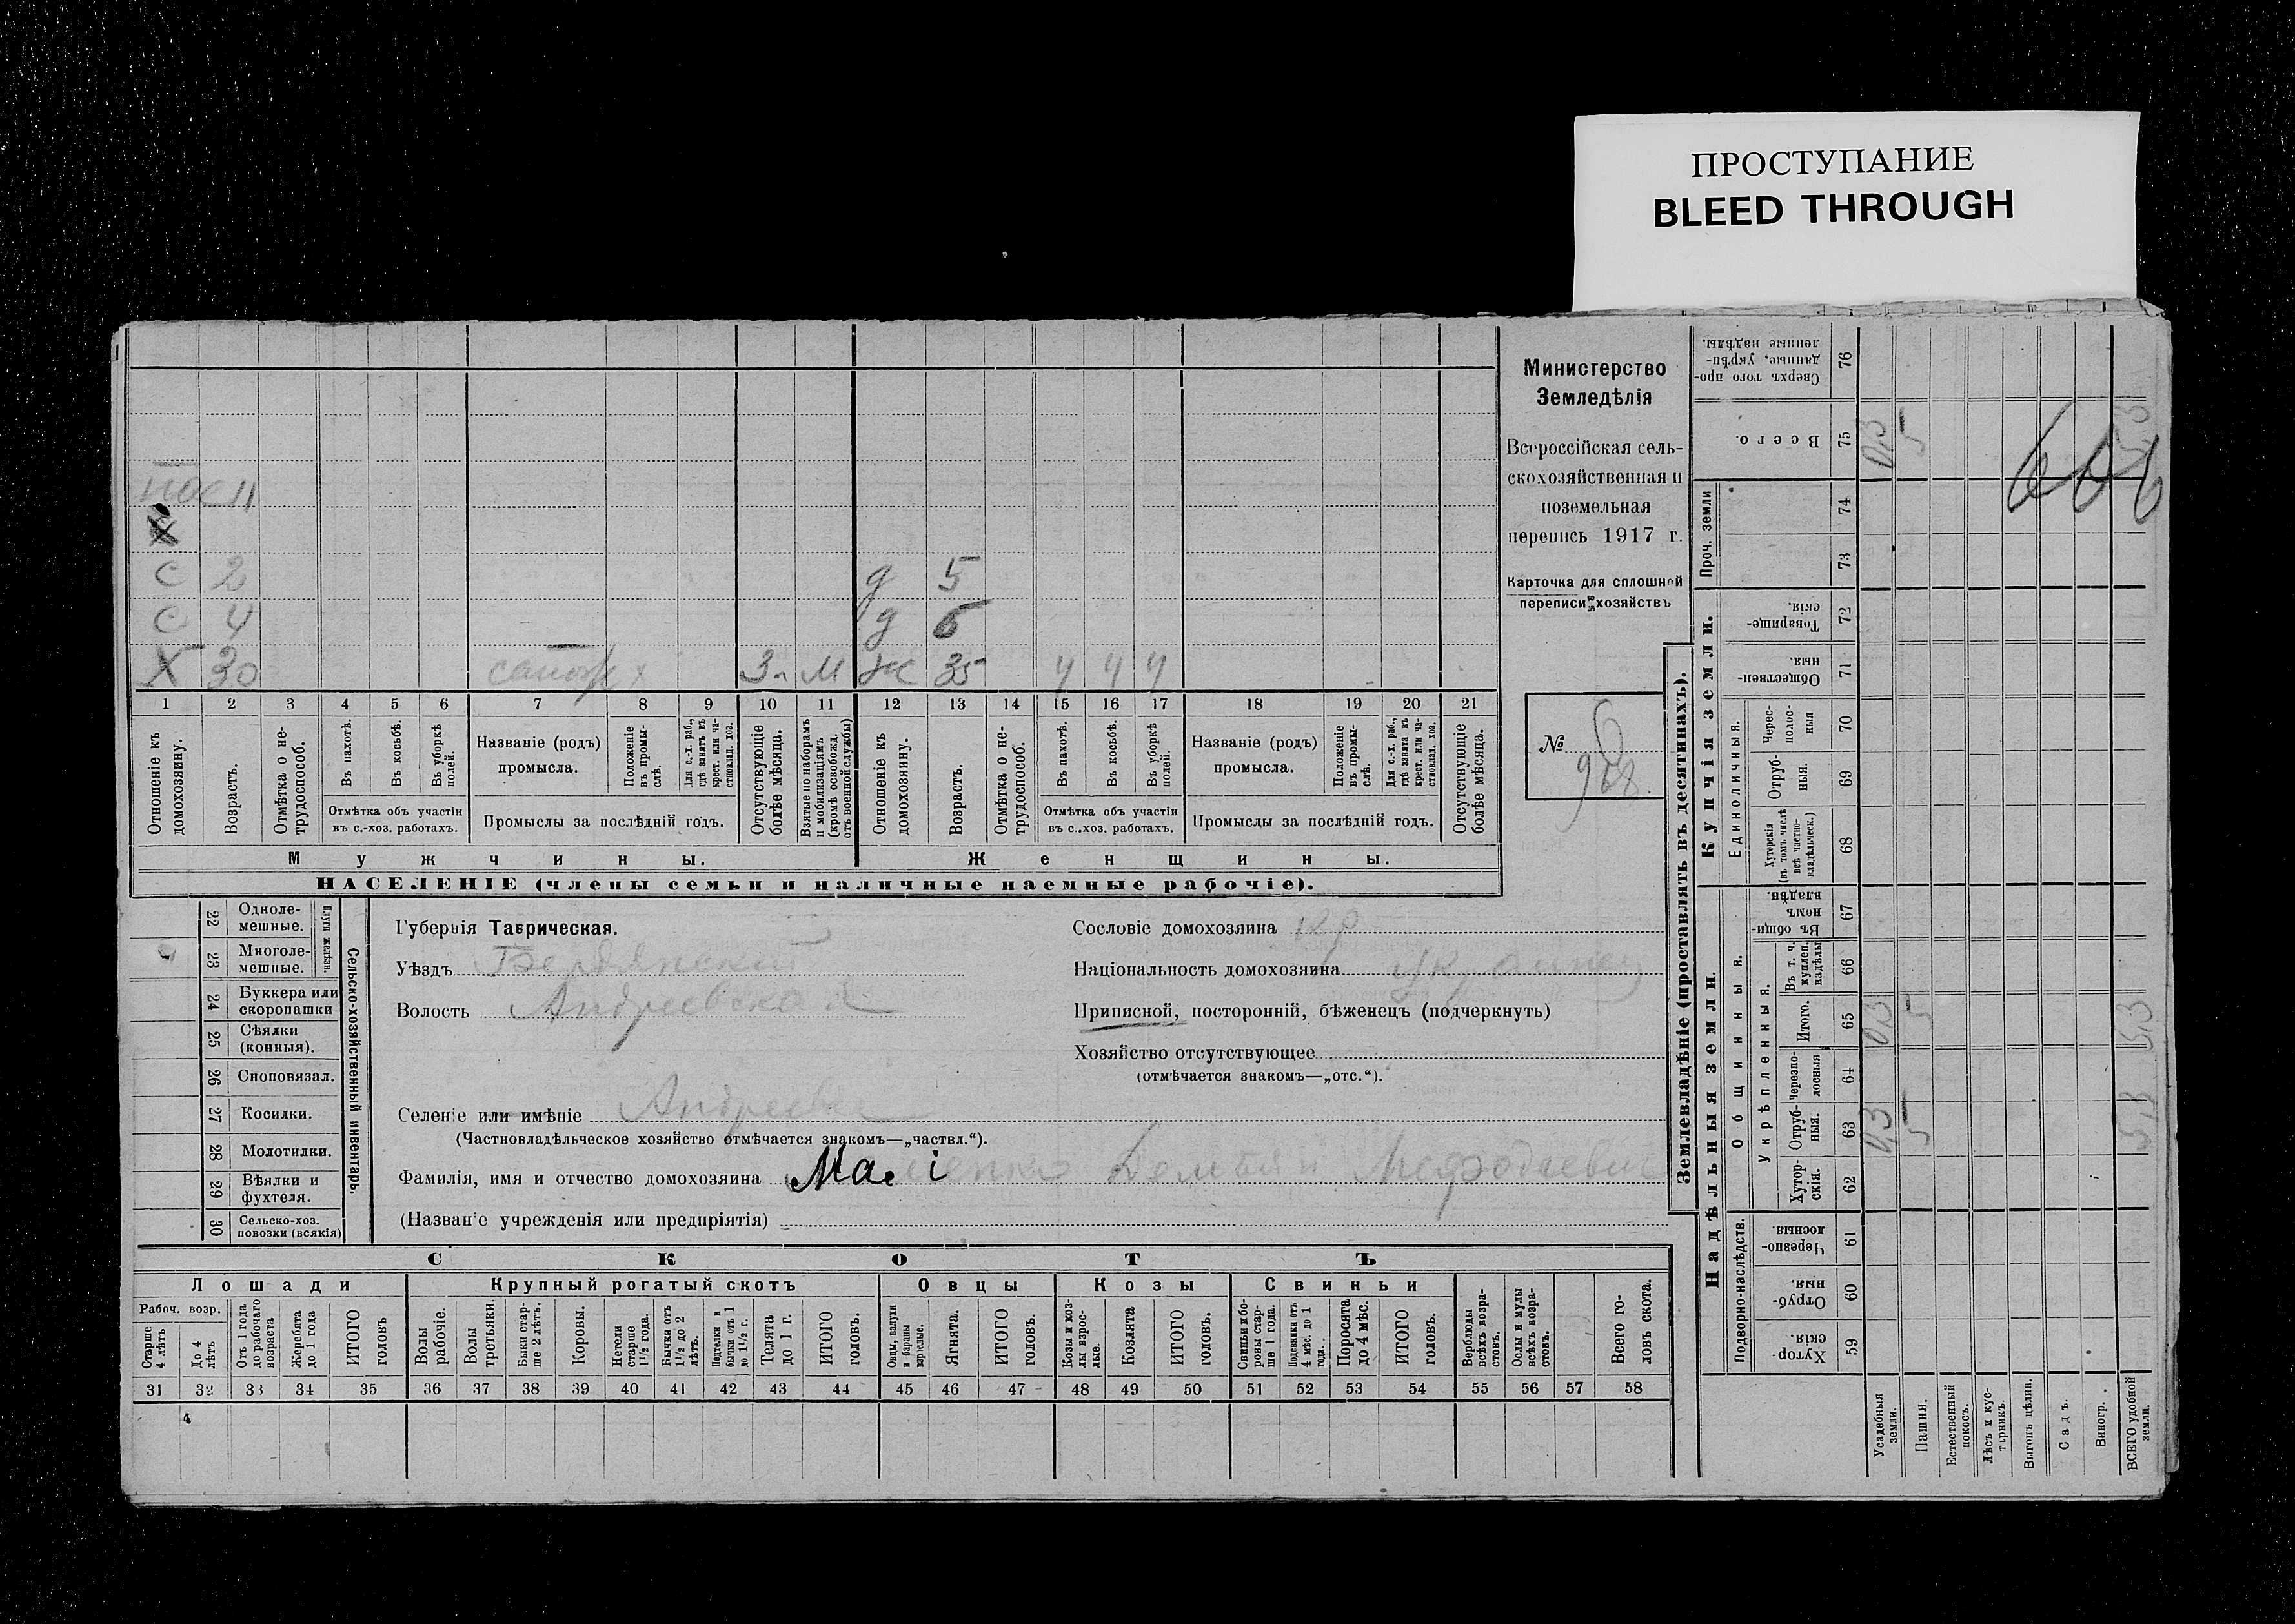 ПРОСТУПАНИЕ
BLEED THROUGH
Министерство
Земледѣлія
Всероссійская сель-
скохозяйственная и
поземельная
перепись 1917 г.
Карточка для сплошной
переписи хозяйствъ
№
с 2 д 5
с 4 д 6
Х 30 З. М Ж 35 ч ч ч
1 2 3 4 5 6 7 8 9 10 11 12 13 14 15 16 17 18 19 20 21
Отношеніе къ домохозяину.
Возрастъ.
Отмѣтка о не-трудоспособ.
Въ пахотѣ.
Въ косьбѣ.
Въ уборкѣ полей.
Отмѣтка объ участіи
въ с.-хоз. работахъ.
Названіе (родъ)
промысла.
Положеніе въ промы-слѣ.
Для с.-х. раб., гдѣ занятъ въ крест. или ча-стновлад. хоз.
Промыслы за послѣдній годъ.
Отсутствующіе болѣе мѣсяца.
Взятые по наборамъ и мобилизаціямъ (кромѣ освобожд. отъ военной службы)
Отношеніе къ домохозяину.
Возрастъ.
Отмѣтка о не-трудоспособ.
Въ пахотѣ.
Въ косьбѣ.
Въ уборкѣ полей.
Отмѣтка объ участіи
въ с.-хоз. работахъ.
Названіе (родъ)
промысла.
Положеніе въ промы-слѣ.
Для с.-х. раб., гдѣ занята въ крест. или ча-стновлад. хоз.
Промыслы за послѣдній годъ.
Отсутствующіе болѣе мѣсяца.
Мужчины. Женщины.
НАСЕЛЕНІЕ (члены семьи и наличные наемные рабочіе).
22 Одноле-мешные.
23 Многоле-мешные.
Плуги желѣзн.
24 Буккера или скоропашки
25 Сѣялки (конныя).
26 Сноповязал.
27 Косилки.
28 Молотилки.
29 Вѣялки и фухтеля.
30 Сельско-хоз. повозки (всякія)
Сельско-хозяйственный инвентарь.
Губернія Таврическая.
Уѣздъ Бердянский
Волость Андреевская
Селеніе или имѣніе Андреевка
(Частновладѣльческое хозяйство отмѣчается знакомъ—„частвл.“).
Фамилія, имя и отчество домохозяина
(Названіе учрежденія или предпріятія)
Сословіе домохозяина кр
Національность домохозяина Украинец
Приписной, посторонній, бѣженецъ (подчеркнуть)
Хозяйство отсутствующее
(отмѣчается знакомъ—„отс.“).
СКОТЪ
Лошади Крупный рогатый скотъ Овцы Козы Свиньи
Рабоч. возр.
Старше 4 лѣтъ
До 4 лѣтъ
Отъ 1 года до рабочаго возраста
Жеребята до 1 года
ИТОГО головъ
Волы рабочіе.
Волы третьяки.
Быки стар-ше 2 лѣтъ.
Коровы.
Нетели старше 1½ года.
Бычки отъ 1½ до 2 лѣтъ.
Подтелки и бычки отъ 1 до 1½ г.
Телята до 1 г.
ИТОГО головъ.
Овцы, валухи и бараны взрослые.
Ягнята.
ИТОГО головъ.
Козы и коз-лы взрос-лые.
Козлята
ИТОГО головъ.
Свиньи и бо-ровы стар-ше 1 года.
Подсвинки отъ 4 мѣс. до 1 года.
Поросята до 4 мѣс.
ИТОГО головъ.
Верблюды всѣхъ возра-стовъ.
Ослы и мулы всѣхъ возра-стовъ.
Всего го-ловъ скота.
31 32 33 34 35 36 37 38 39 40 41 42 43 44 45 46 47 48 49 50 51 52 53 54 55 56 57 58
Землевладѣніе (проставлять въ десятинахъ).
Надѣльныя земли. Купчія земли. Проч. земли
Подворно-наслѣдств.
Общинныя.
Укрѣпленныя.
Единоличныя.
Хутор-скія. 59
Отруб-ныя. 60
Черезпо-лосныя. 61
Хутор-скія. 62
Отруб-ныя. 63 0,3 5 5,3
Черезпо-лосныя 64
Итого. 65 0,3 5 5,3
Въ т. ч. куплен. надѣлы 66
Въ общин-номъ владѣн. 67
Хуторскія (въ томъ числѣ всѣ частно-владѣльческ.) 68
Отруб-ныя. 69
Черес-полос-ныя 70
Обществен-ныя. 71
Товарище-скія. 72
73
74
Всего. 75 0,3 5 5,3
Сверхъ того про-данные, укрѣп-ленные надѣлы. 76
Усадебныя земли.
Пашня.
Естественный покосъ.
Лѣсъ и кус-тарникъ.
Выгонъ цѣлин.
Садъ.
Виногр.
ВСЕГО удобной земли.